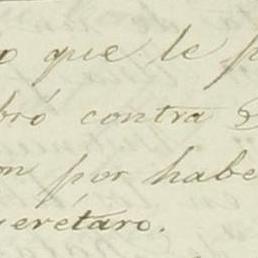 o que le p
bró contra S
on por habe
uerétaro.